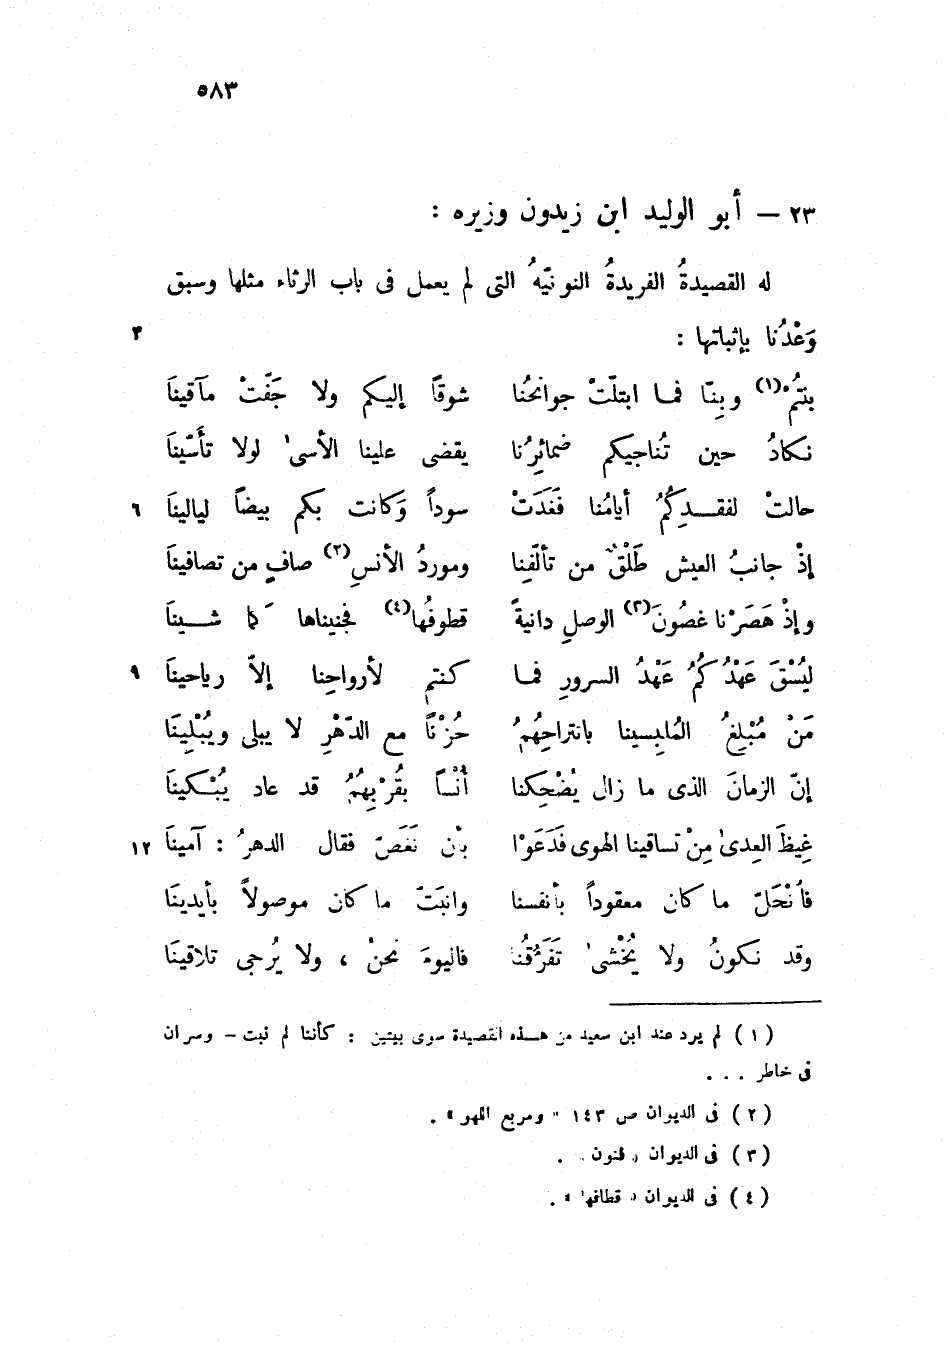 ٥٨٣
٢٣ — أبو الوليد ابن زيدون وزيره :
له القصيدةُ الفريدةُ النونيّهُ التى لم يعمل فى باب الرثاء مثلها وسبق
وَعْدُنا بإثباتها : ٣
بنتُمْ(١) وبِنّا فمـا ابتلّتْ جوانحُنا شوقاً إليكم ولا جَفّتْ مآقيناَ
نكادُ حين تُناجيكم ضمائرُنا يقضى علينا الأسىٰ لولا تأَسّيناَ
حالتْ لفقـدِكُمُ أيامُنا فَغَدَتْ سوداً وَكانت بكم بيضاً لياليناَ ٦
إذْ جانبُ العيش طَلْقٌ من تألّفِنا وموردُ الأنسِ(٢) صافٍ من تصافيناَ
وإذْ هَصَرْنا غصُونَ(٣) الوصلِ دانيةً قطوفُها(٤) فجنيناها كما شـيناَ
ليُسْقَ عَهْدُكُمُ عَهْدُ السرورِ فمـا كنتم لأرواحِنا إلاّ رياحيناَ ٩
مَنْ مُبْلِغُ المُلبِسينا بانتراحِهُمُ حُزْناً مع الدّهْرِ لا يبلى ويُبْلِينَا
إنّ الزمانَ الذى ما زال يُضْحِكنا أُنْساً بقُرْبِهُمُ قد عاد يُبْـكيناَ
غِيظَ العِدىٰ مِنْ تساقينا الهوى فَدَعَوْا بأن نَغَصّ فقال الدهرُ : آميناَ ١٢
فاُنْحَلّ ما كان معقوداً بأنفسنا وانبَتّ ما كان موصولاً بأيدينَا
وقد نكونُ ولا يُخْشىٰ تَفَرّقُنا فاليومَ نحنْ ، ولا يُرجى تلاقينَا
(١) لم يرد عند ابن سعيد من هـذه القصيدة سوى بيتين : كأننا لم نبت – وسران
فى خاطر . . .
(٢) فى الديوان ص ١٤٣ « ومربع اللهو » .
(٣) فى الديوان « فنون » .
(٤) فى الديوان « قطافها » .